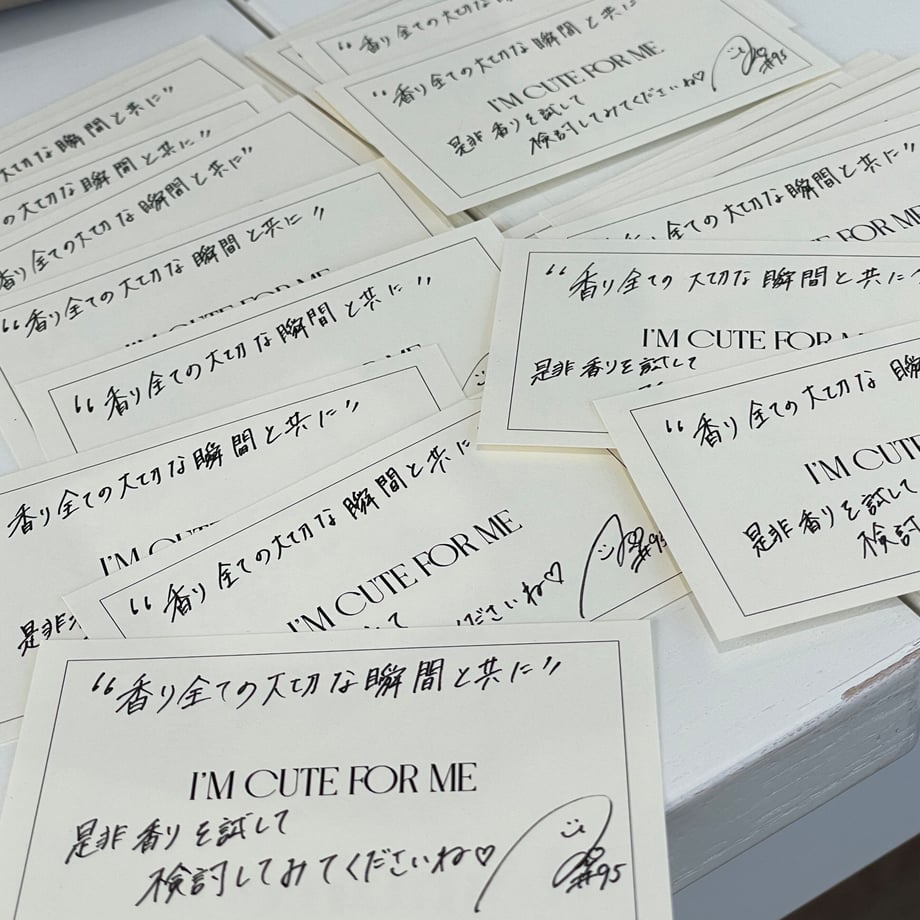 “香り全ての大切な瞬間と共に”
“香り全ての大切な瞬間と共に”
I'M CUTE FOR ME
是非香りを試して
検討してみてくださいね♡
#95
大切な瞬間と共に”
の大切な瞬間と共に”
香り全ての大切な瞬間と共に”
“香り全ての大切な瞬間と共に”
I'M CUTE FOR ME
“香り全ての大切な瞬間と共に”
ME
香り全ての大切な瞬間と共に”
I'M CUTE
是非
“香り全ての大切な瞬間と共に
I'M CUTE FOR ME
くださいね♡
#95
香り全ての大切な瞬間と共に”
CUTE FOR ME
“香り全ての大切な瞬間と共に
I'M CUTE FOR M
是非香りを試して
“香り全ての大切な瞬
I'M CUTE
是非香りを試して
検討
“香り全ての大切な瞬間と共に”
I'M CUTE FOR ME
是非香りを試して
検討してみてくださいね♡
#95